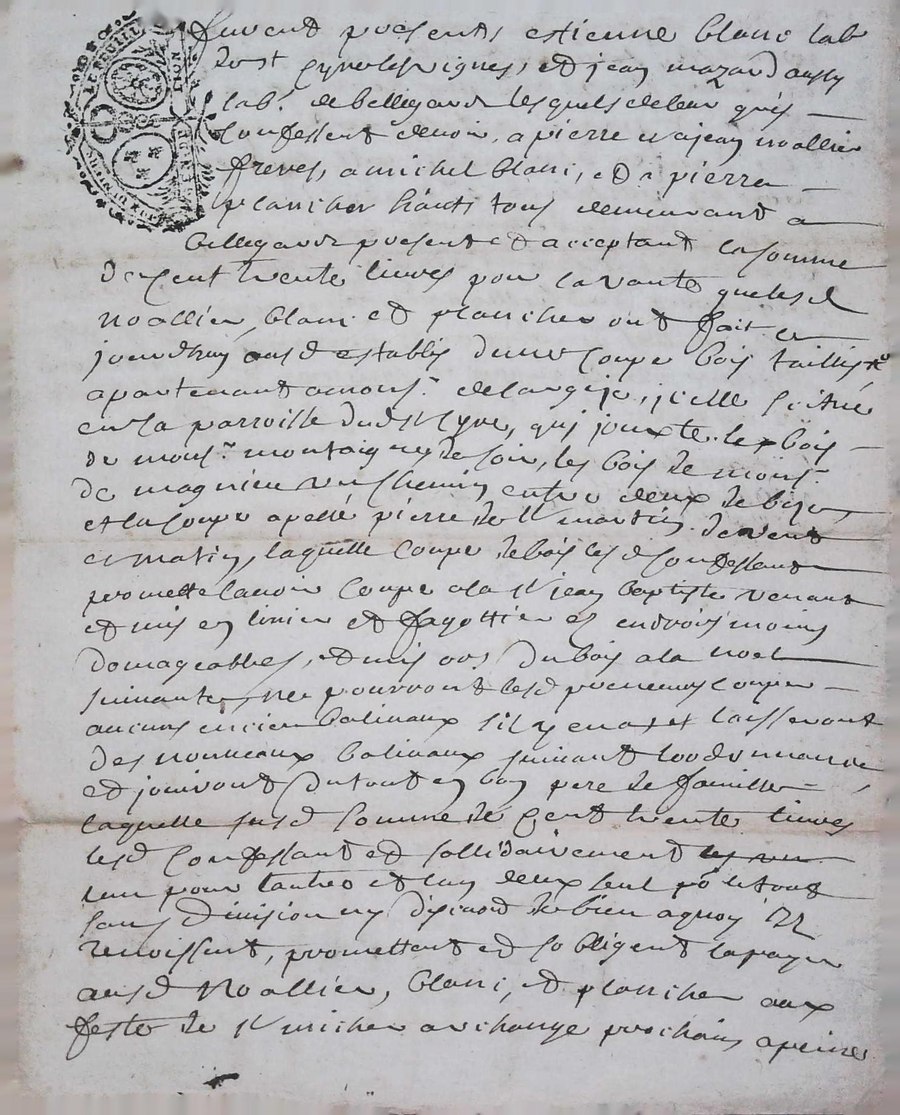 furent présents estienne blanc lab
de st Cyre les vignes, et jean mazard aussy
lab.r de bellegarde lesquels de leur gré
Confessent devoir, a pierre et a jean noallier
freres, a michel blanc, et a pierre
plancher habits tous demeurant a
bellegarde present et acceptant la somme
de cent trente livres pour la vante que lesd
noallier, blanc et plancher ont fait ce
jourdhuy ausd establis dune Coupe bois taillis
apartenant a mons.r de , icelle scitué
en la parroisse dud st Cyre, qui jouxte le bois
de mons.r montaigne de soir, les bois de mons.r
de magnieu un chemin entre deux de bize
et la coupe apellé pierre de st martin de vent
et matin, laquelle coupe de bois lesd Confessant
promette lavoir coupe a la st jean baptiste venant
et mis en et fagottier es endrois moins
domageables, et mis ors du bois a la noel
suivante, ne pourront lesd preneurs couper
aucuns encien balivaux sil y en a et laisseront
des nouveaux balivaux suivant lordonnance
et jouiront du tout en bon pere de famille
laquelle susd somme de cent trente livres
lesd Confessant et sollidairement
lun pour lautre et lun deux seul po.r le tout
sans division ny discution de bien a quoy ils
renoissent, promettent et sobligent la payer
ausd Noallier, blanc, et plancher aux
feste de st michel archange prochain a peine